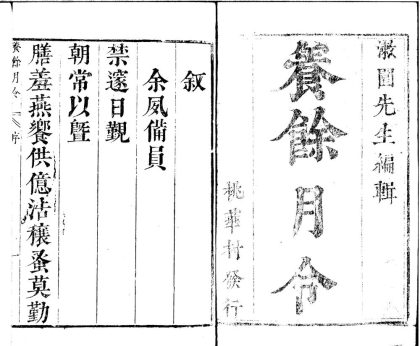 漱園先生編輯
養餘月令
桃華村發行
叙
余夙備員
禁𨗿日覲
朝常以暨
膳羞燕饗供億沽穰蚤莫勤
養餘月令
序